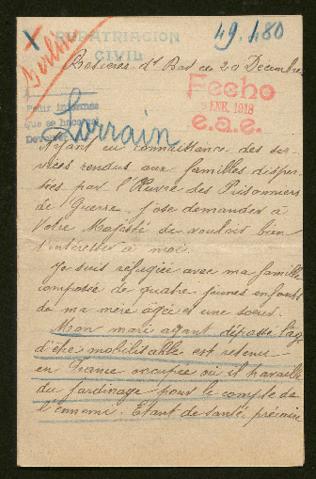 X
REPATRIACION
CIVIL
49.480
Berlin
Rosières dt Bar ce 20 Decembre
Fecho
ENE. 1918
e.a.e.
Pedir informes
que se hace al
Lorrain
Ayant eu connaissance des ser-
vices rendus aux familles disper-
sées par l'Œuvre des Prisonniers
de Guerre, j'ose demander à
Votre Majesté de vouloir bien
s'intéresser à moi.
Je suis refugiée avec ma famille
composée de quatre jeunes enfants
de ma mère agée et une soeur.
Mon mari ayant dépassé l'age
d'être mobilisable est retenu
en France occupée où il travaille
du jardinage pour le compte de
l'ennemi. Etant de santé précaire